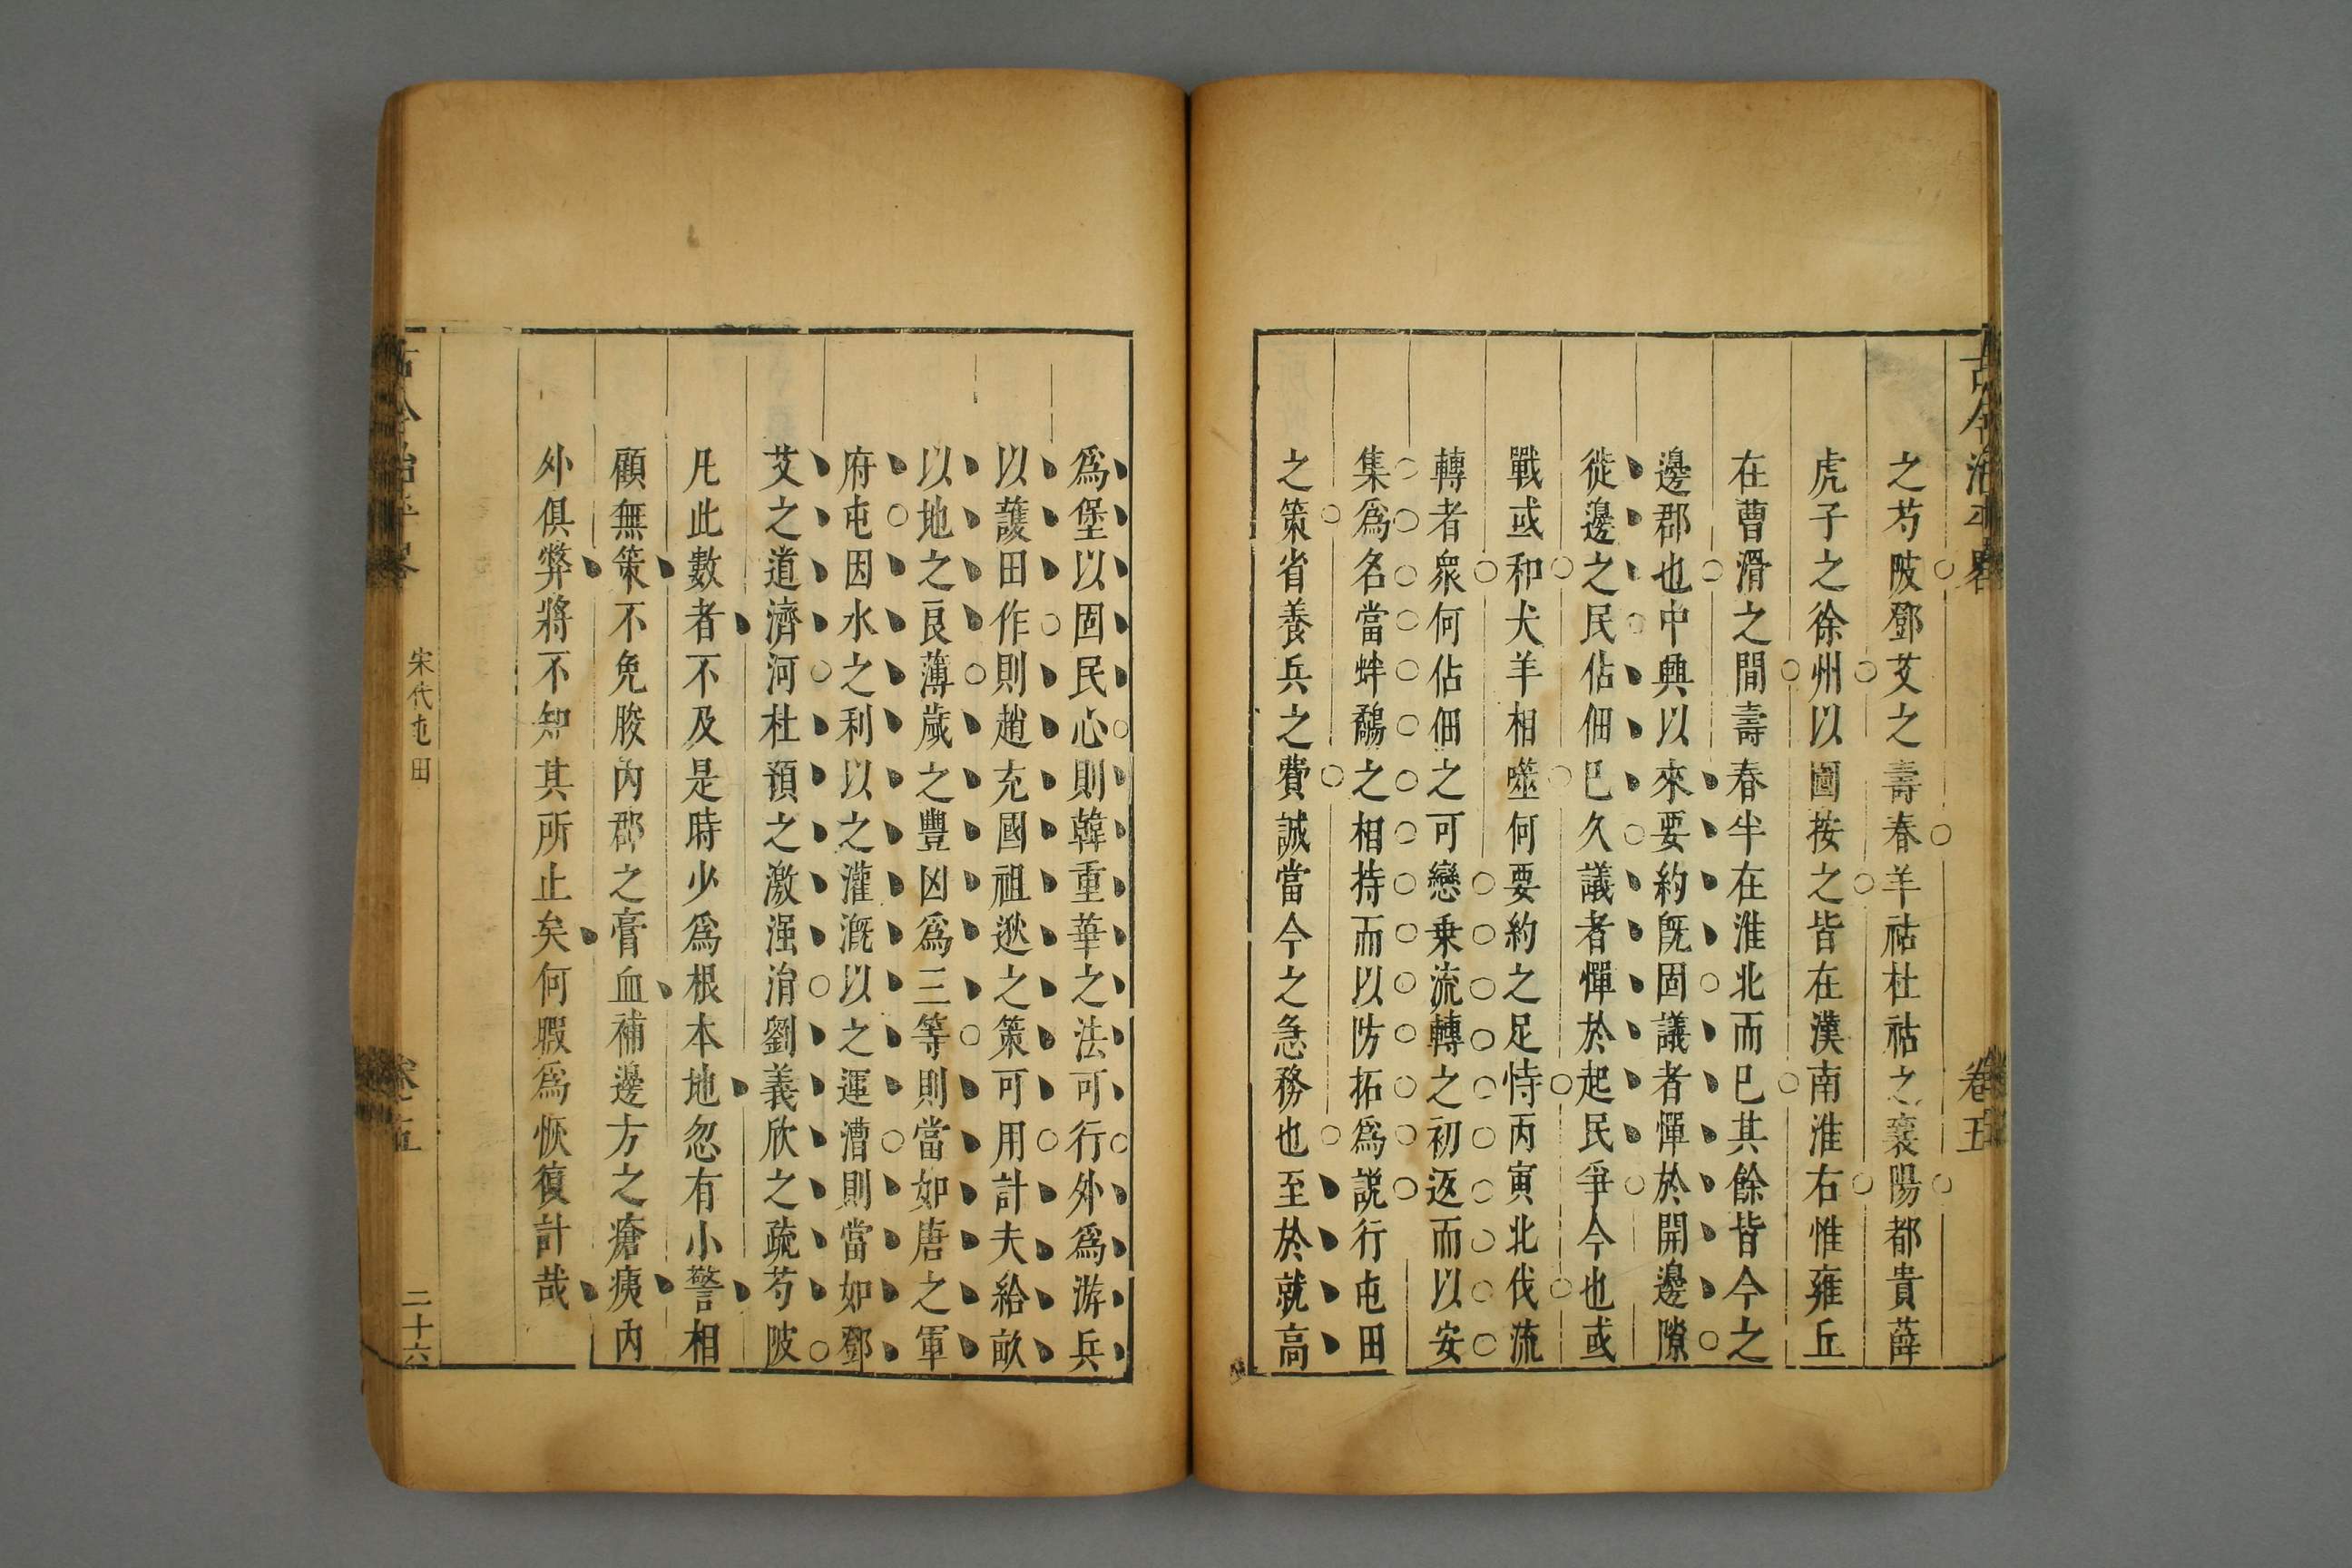 古今治平畧
卷五
之芍陂鄧艾之壽春羊祜杜祜之襄陽都貴薛
虎子之徐州以圖按之皆在漢南淮右惟雍丘
在曹滑之間壽春半在淮北而已其餘皆今之
邊郡也中興以來要約旣固議者憚於開邊隙
從邊之民佔佃已久議者憚於起民爭今也或
戰或和犬羊相噬何要約之足恃丙寅北伐流
轉者衆何佔佃之可戀乗流轉之初返而以安
集爲名當蚌鷸之相持而以防拓爲說行屯田
之策省養兵之費誠當今之急務也至於就高
爲堡以固民心則韓重華之法可行外爲游兵
以護田作則趙充國祖逖之策可用計夫給畝
以地之良薄歲之豐凶爲三等則當如唐之軍
府屯因水之利以之灌溉以之運漕則當如鄧
艾之道濟河杜預之激滍淯劉義欣之疏芍陂
凡此數者不及是時少爲根本地忽有小警相
顧無策不免朘內郡之膏血補邊方之瘡痍內
外俱弊將不知其所止矣何暇爲恢復計哉
古今治平畧
宋代屯田
卷五
二十六